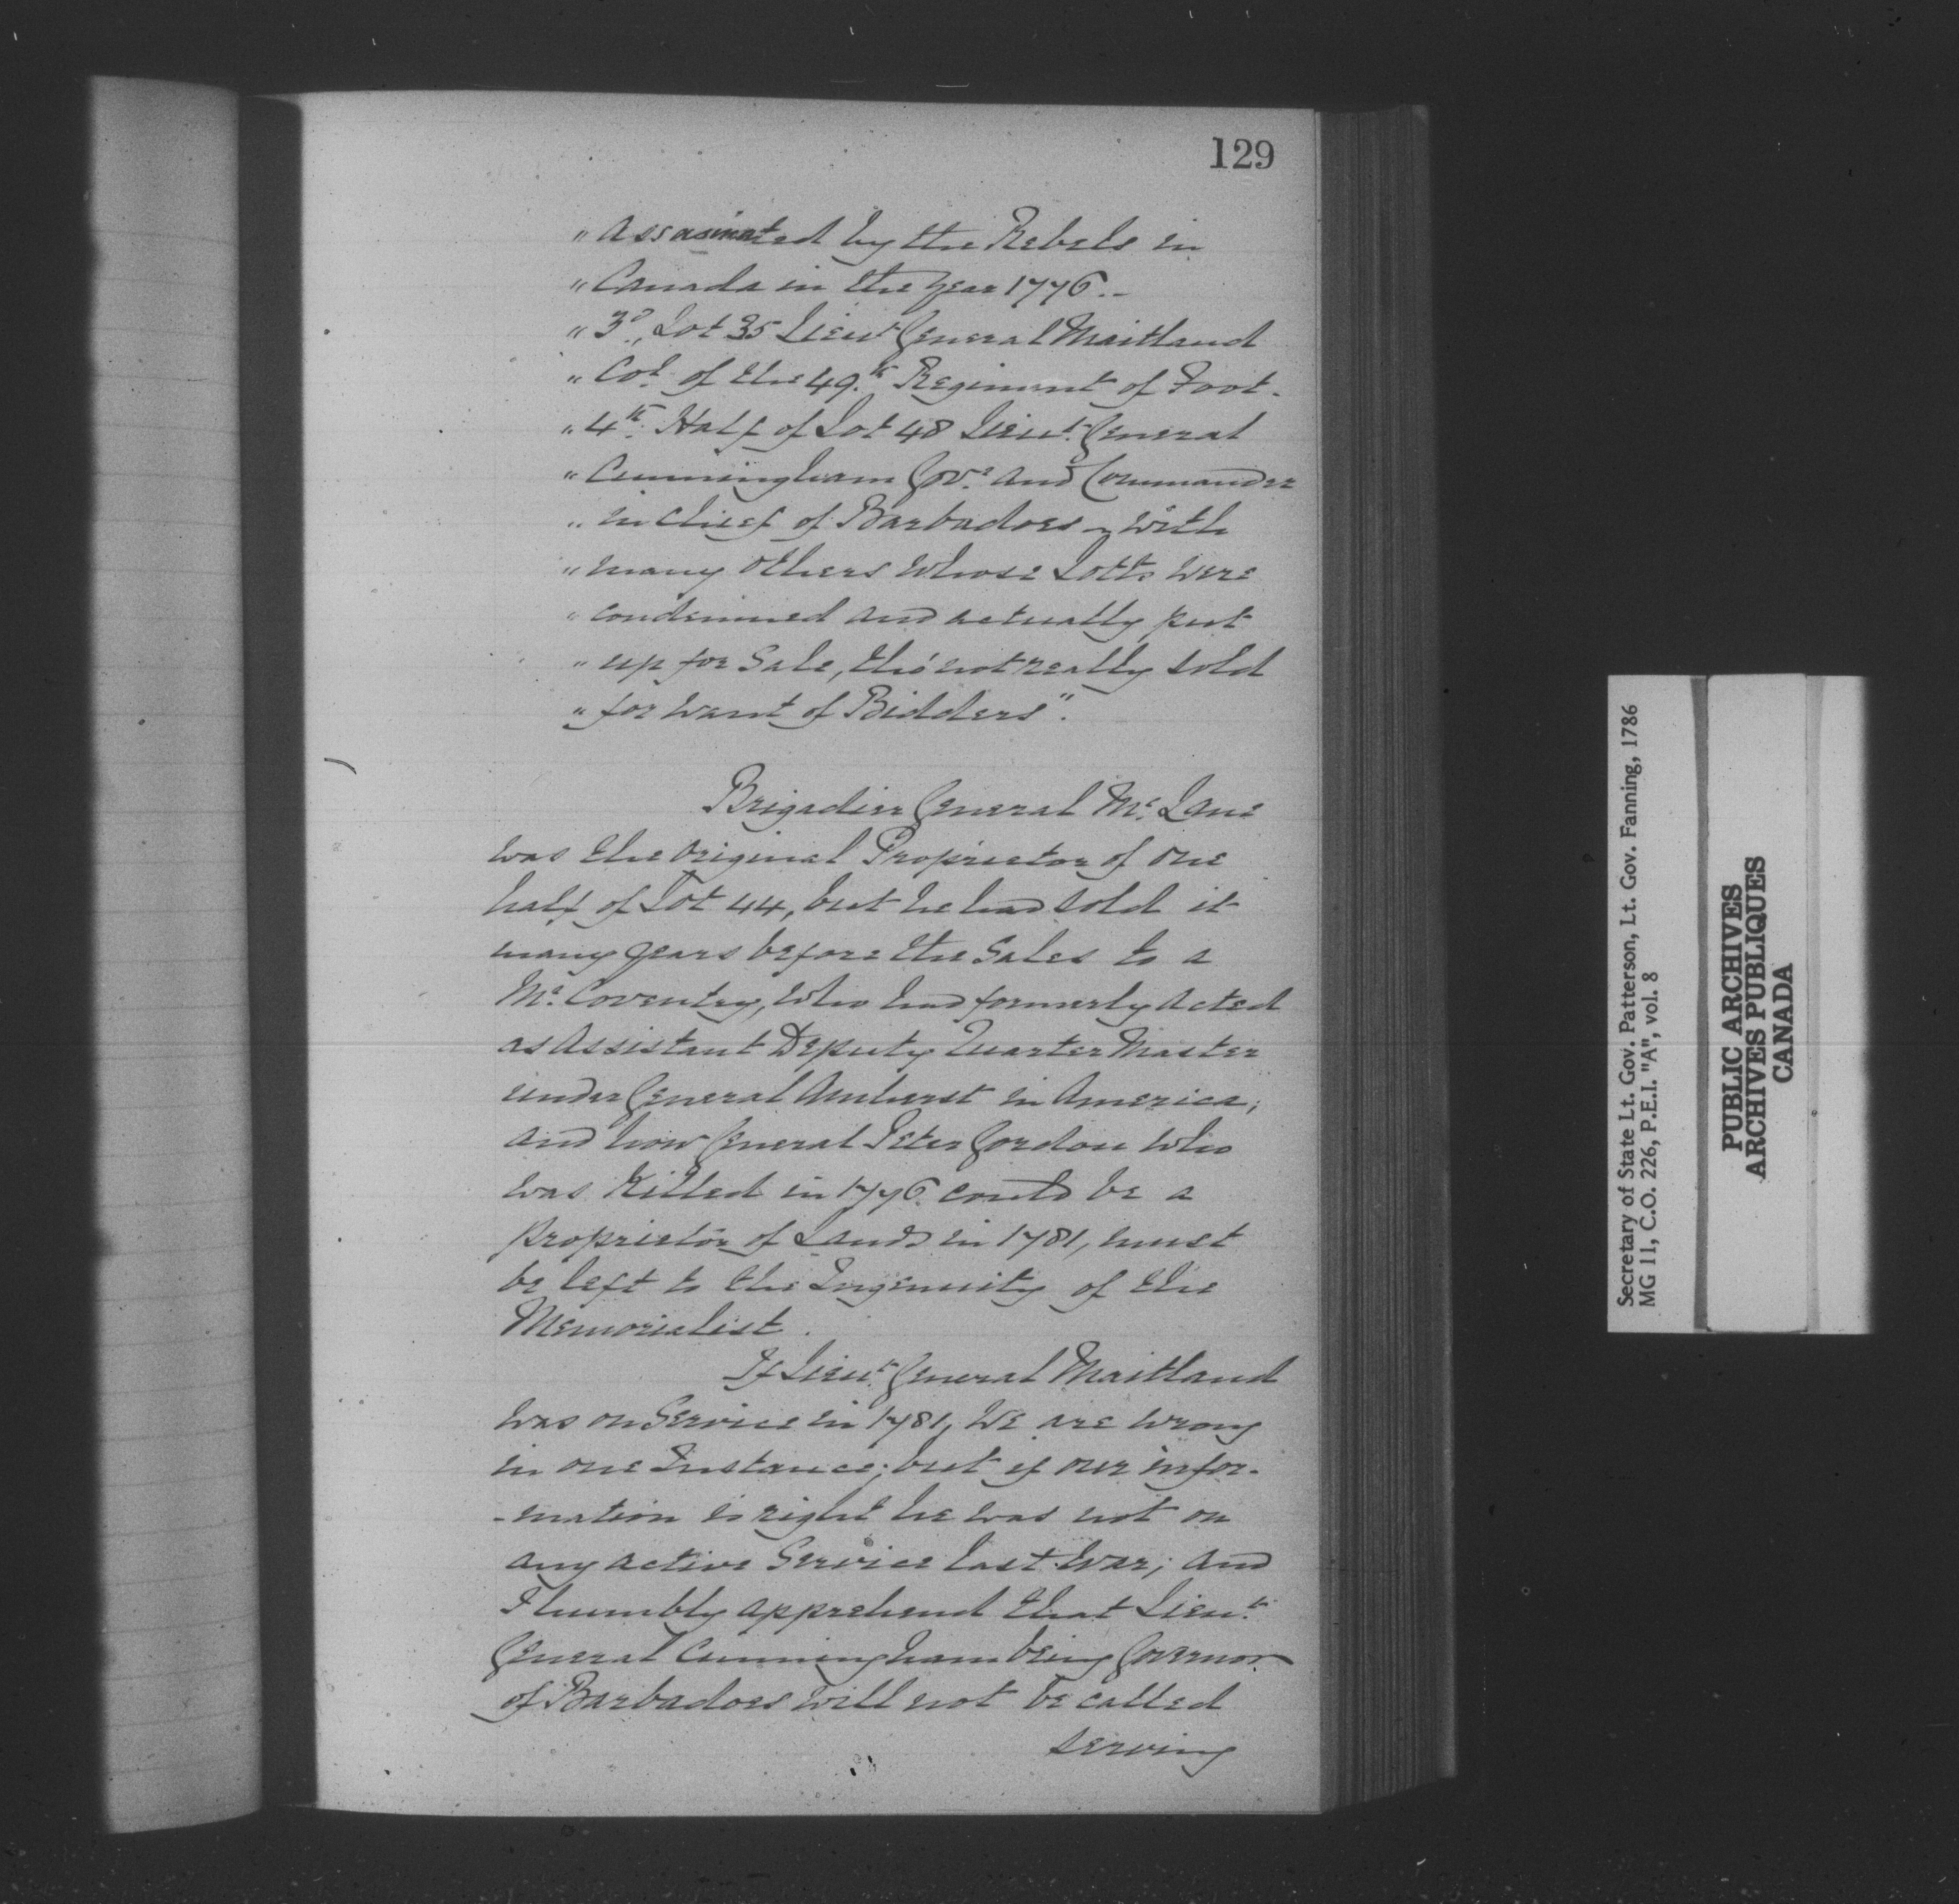 129
" Assasinated by the Rebels in
" Canada in the Year 1776. -
" 3.º, Lot 35 Lieut. General Maitland
" Col. of the 49.th Regiment of Foot.
" 4.th Half of Lot 48 Lieut. General
" Cunningham Gov.r and Commander
" in Chief of Barbadoes - with
" many others whose Lotts were
" condemned and actually put
" up for Sale, tho' not really sold
" for want of Bidders".
Brigadier General Mc. Lane
was the original Proprietor of one
half of Lot 44, but he had sold it
many years before the Sales to a
Mr. Coventry, who had formerly Acted
as Assistant Deputy Quarter Master
under General Amherst in America;
and how General Peter Gordon who
was Killed in 1776 could be a
proprietor of Lands in 1781, must
be left to the Ingenuity of the
Memorialist.
If Lieut. General Maitland
was on Service in 1781, We are wrong
in one Instance; but if our infor-
-mation is right he was not on
any active Service last War; and
I humbly apprehend that Lieut.
General Cunningham being Governor
of Barbadoes will not be called
serving
Secretary of State Lt. Gov. Patterson, Lt. Gov. Fanning, 1786
MG 11, C.O. 226, P.E.I. "A", vol. 8
PUBLIC ARCHIVES
ARCHIVES PUBLIQUES
CANADA